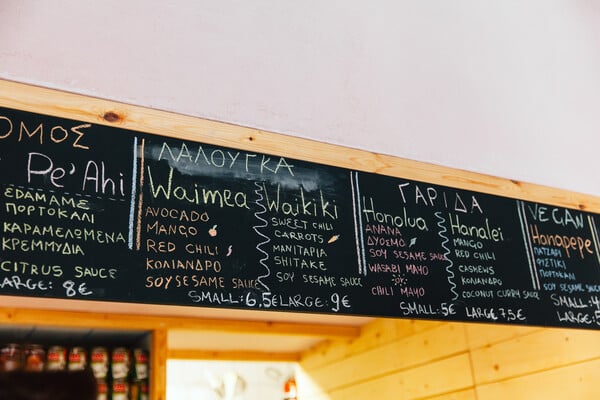 ΟΜΟΣ
Pe'Ahi
ΕΔΑΜΑΜΕ
ΠΟΡΤΟΚΑΛΙ
ΚΑΡΑΜΕΛΩΜΕΝΑ
ΚΡΕΜΜΥΔΙΑ
CITRUS SAUCE
LARGE: 8€
ΛΑΛΟΥΓΚΑ
Waimea
AVOCADO
MANGO
RED CHILI
ΚΟΛΙΑΝΔΡΟ
SOY SESAME SAUCE
Waikiki
SWEET CHILI
CARROTS
ΜΑΝΙΤΑΡΙΑ
SHITAKE
SOY SESAME SAUCE
SMALL: 6.5€ LARGE: 9€
ΓΑΡΙΔΑ
Honolua
ΑΝΑΝΑ
ΔΥΟΣΜΟ
SOY SESAME SAUCE
WASABI MAYO
CHILI MAYO
Hanalei
MANGO
RED CHILI
CASHEWS
ΚΟΛΙΑΝΔΡΟ
COCONUT CURRY SAUCE
SMALL: 5€ LARGE 7,5€
VEGAN
Hanapepe
ΠΑΤΖΑΡΙ
ΦΙΣΤΙΚΙ
ΠΟΡΤΟΚΑΛΙ
SOY SESAME SAUCE
SMALL:
LARGE: